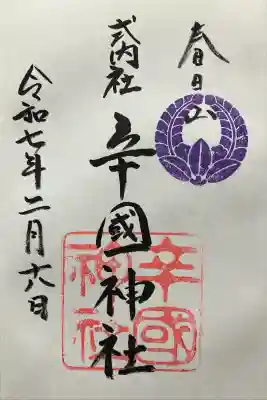 春日山
式内社
辛國神社
辛國
神社
令和七年二月六日